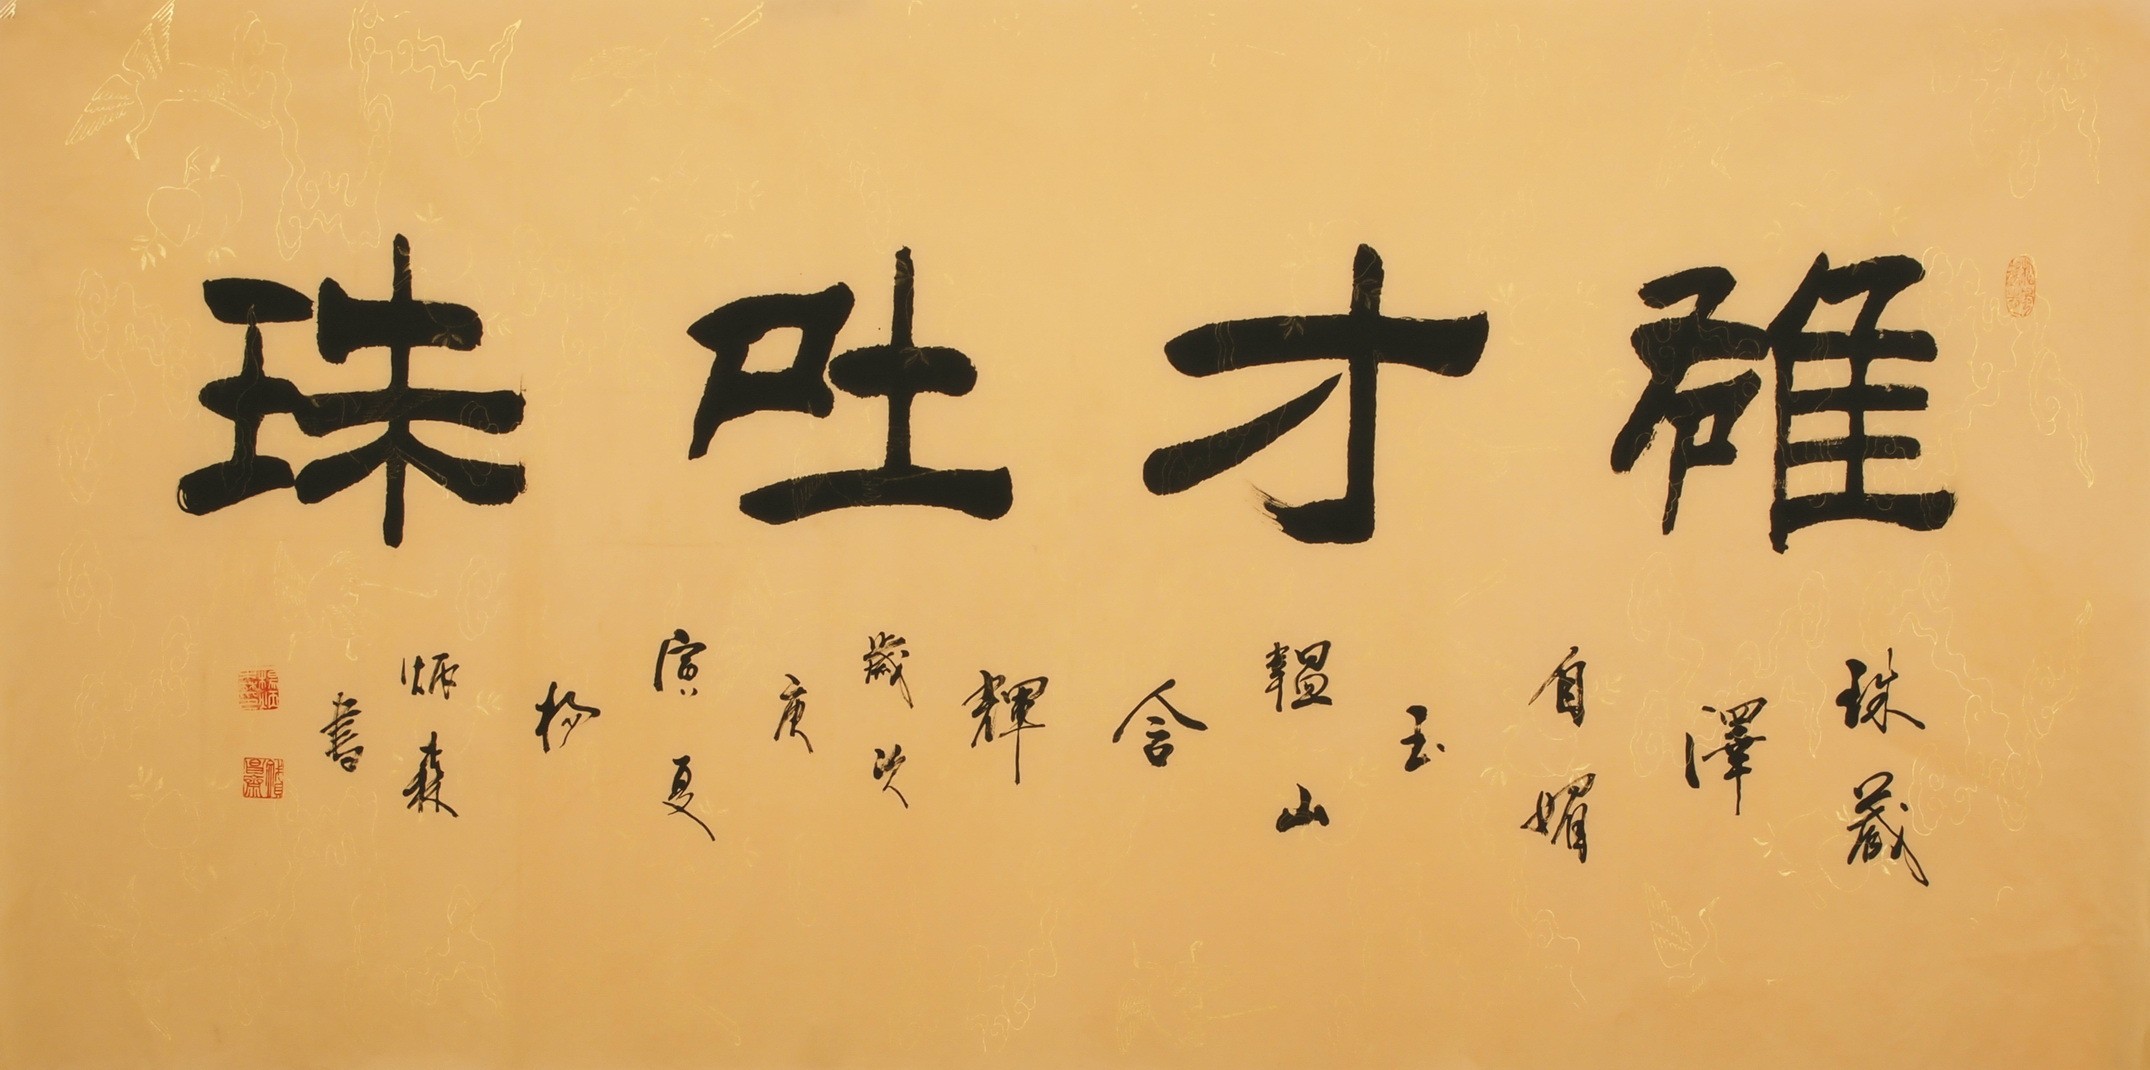 雅才吐珠
珠藏
澤
自媚
玉
韞山
含
輝
歲次
庚
寅夏
楊
炳森
書